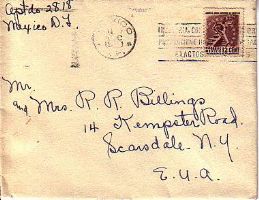 Aptdo 2818
Mexico D.F.
MEXICO
EXACTOS
Mr.
and Mrs. R R Billings
14 Kempster Road.
Scarsdale. N.Y
E.U.A.